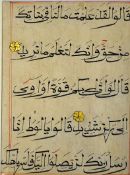 قالوا لقد علمت ما لنا في بناتك
من حق وانك لتعلم ما نريد
قال لو ان لي بكم قوة او اوي
الى ركن شديد قالوا يلوط انا
رسل ربك لن يصلوا اليك فاسر